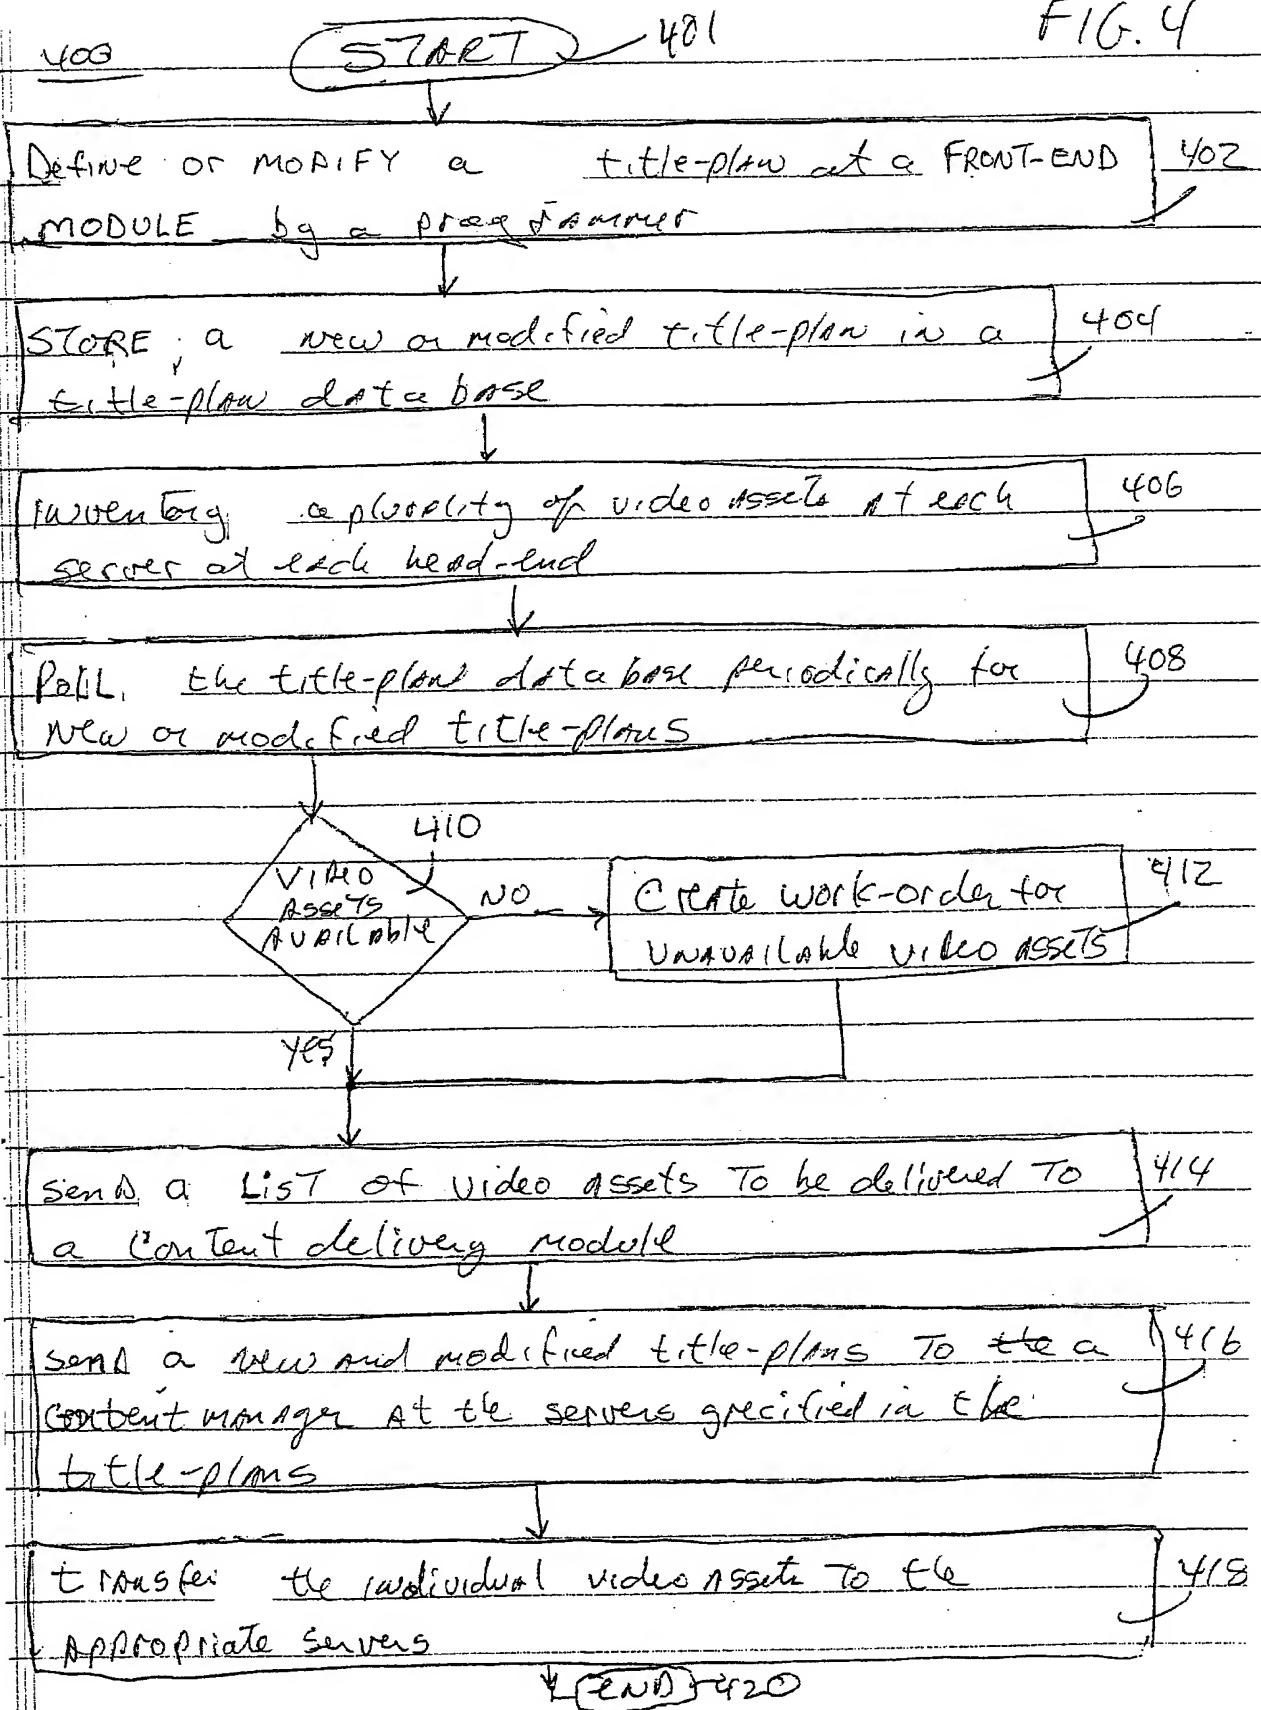 FIG. 4
400
START 401
Define or MODIFY a title-plan at a FRONT-END 402
MODULE by a programmer
STORE a new or modified title-plan in a 404
title-plan data base
Inventory a plurality of video assets at each 406
server at each head-end
Poll the title-plan data base periodically for 408
New or modified title-plans
410
VIDEO
ASSETS
AVAILABLE
NO
Create work-order for 412
UNAVAILABLE VIDEO ASSETS
YES
send a LIST of video assets To be delivered To 414
a Content delivery module
send a new and modified title-plans To the a 416
content manager at the servers specified in the
title-plans
transfer the individual video assets To the 418
Appropriate servers
END 420